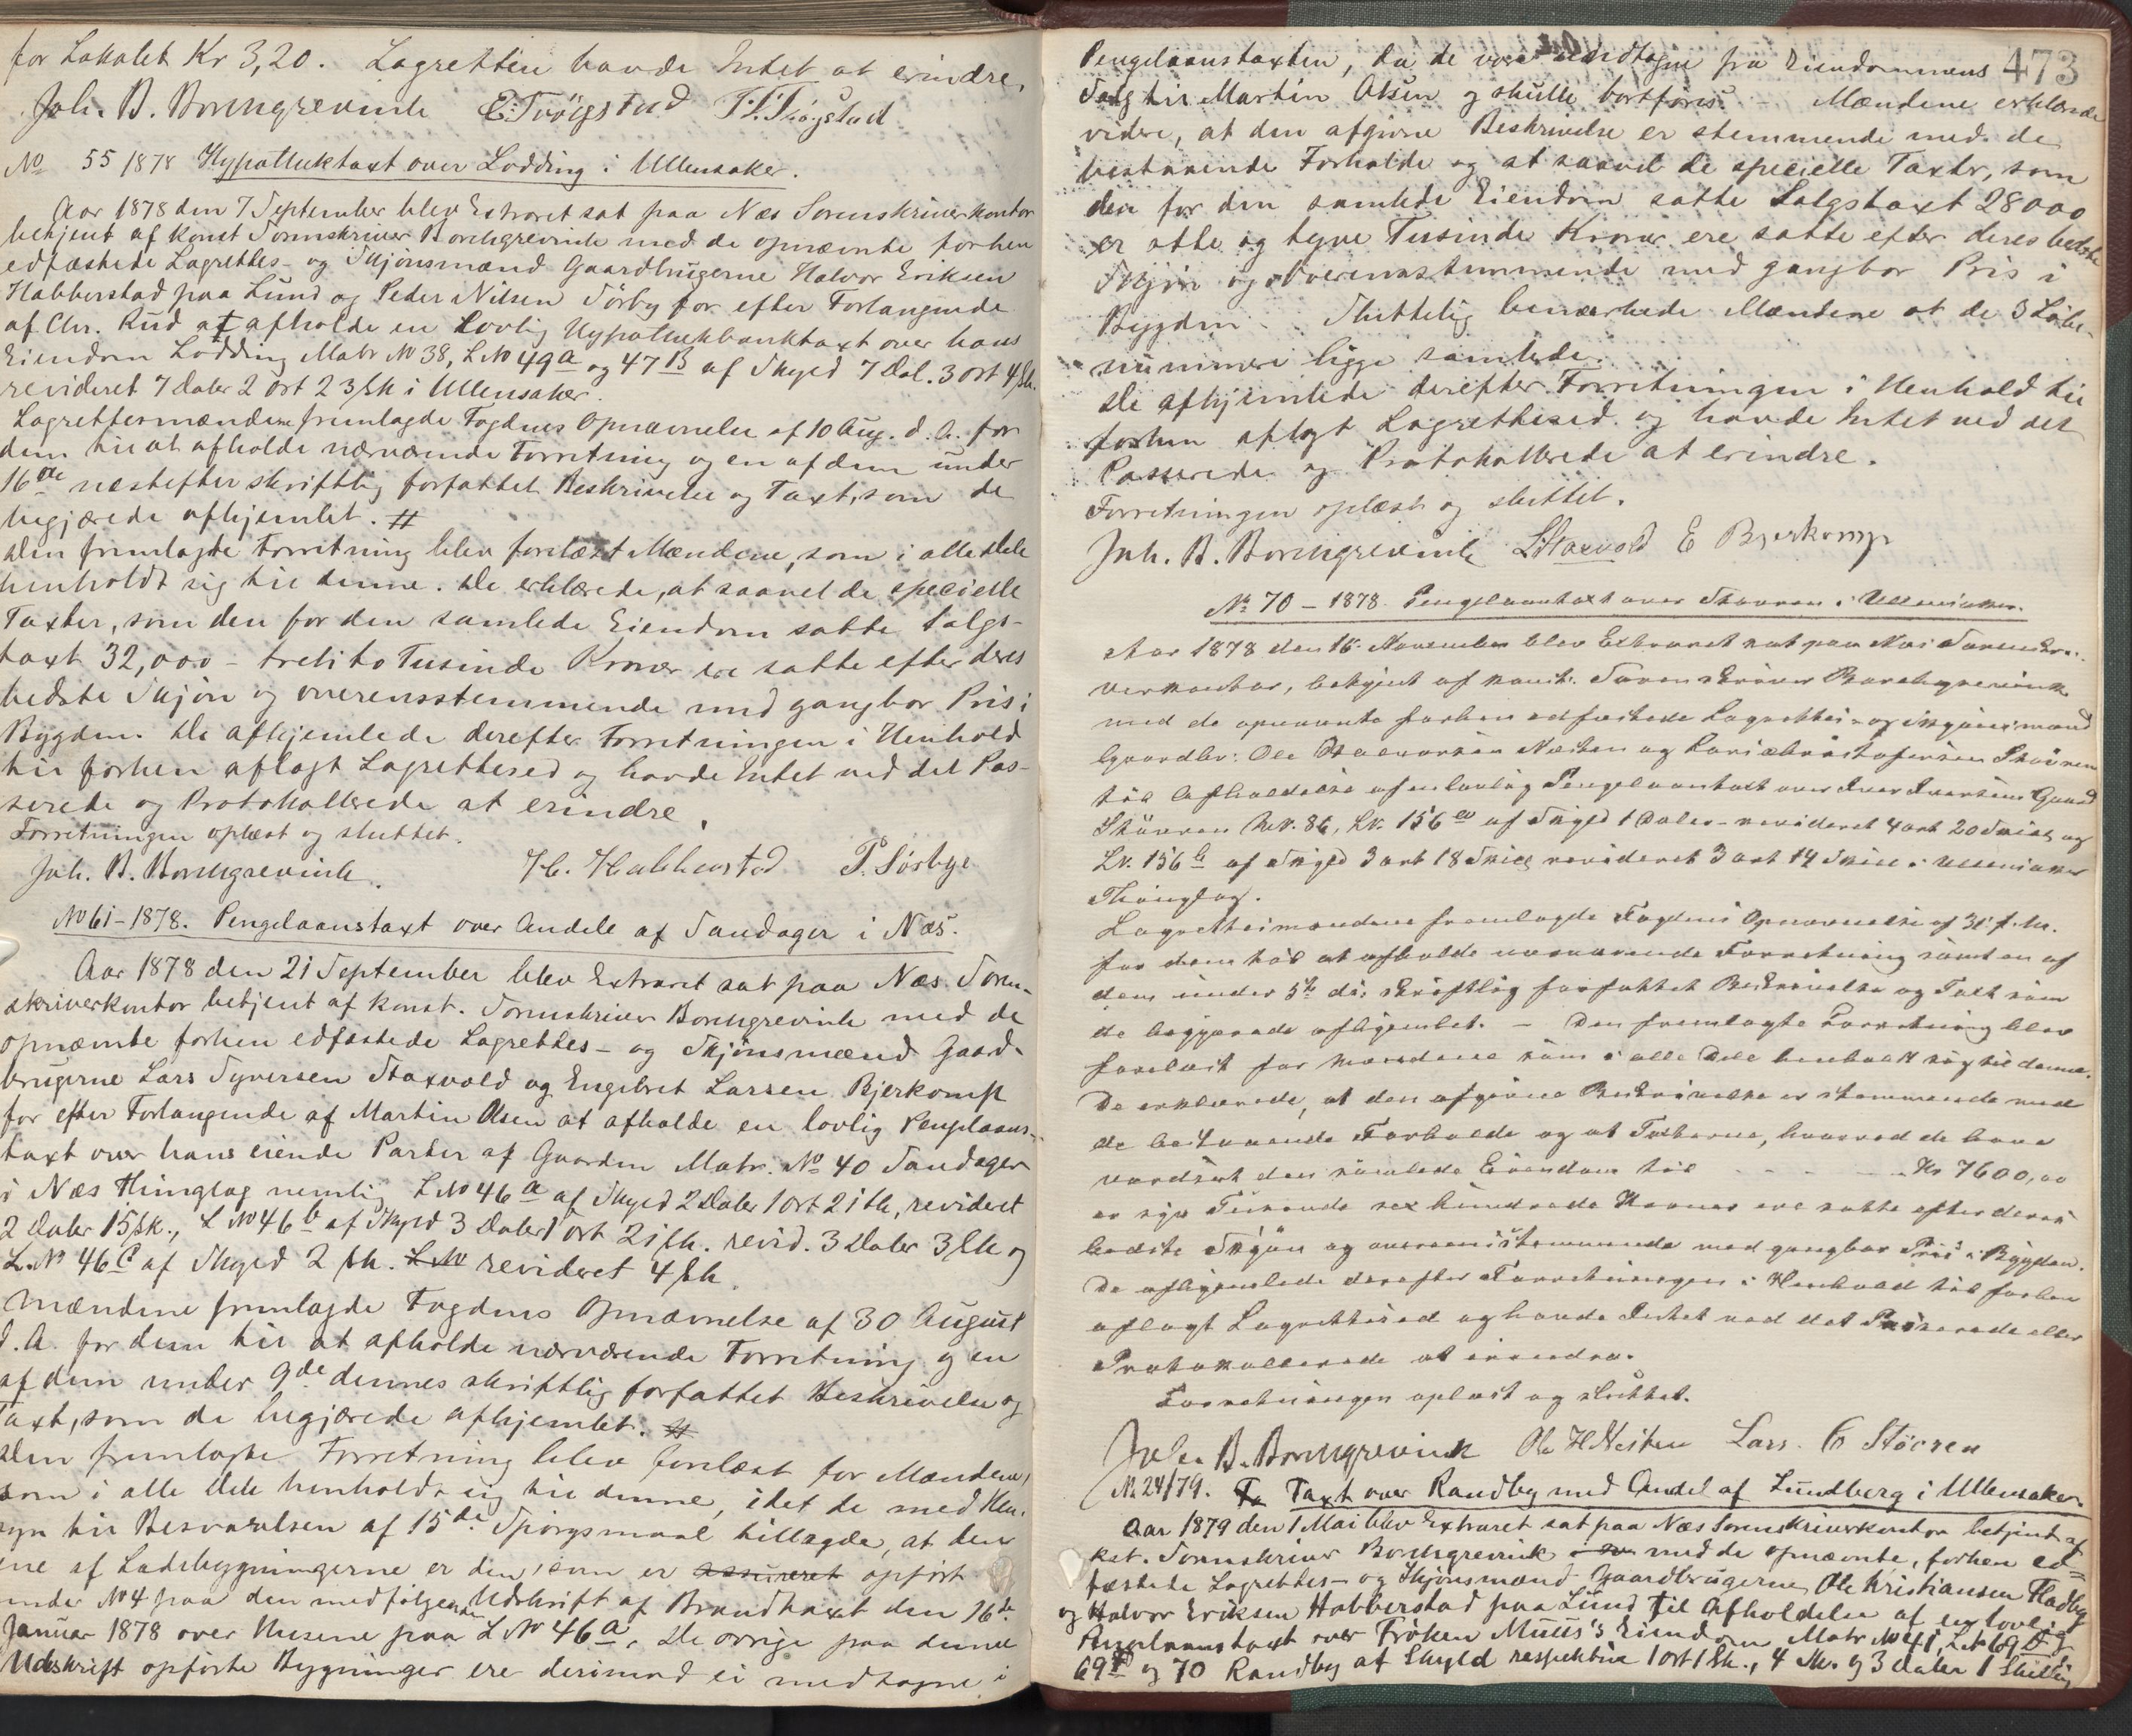 for Lokalet Kr 3,20. Lagretten havde Intet at erindre,
Joh. B. Borchgrevink E. Tveögstad
No 55 1878 Hypothektaxt over Lødding i Ullensaker.
Aar 1878 den 7 September blev Extraret sat paa Nes Sorenskriverkontor
betjent af Konst Sorenskriver Borchgrevink med de opnævnte forhen
edfæstede Lagrettes- og Skjønsmænd Gaardbrugerne Halvor Eriksen
Habberstad paa Lund og Peder Nilsen Sørby for efter Forlangende
af Chr. Rud at afholde en lovlig Hypothekbanktaxt over hans
Eiendom Lødding Matr No 38, L No 49a og 47B af Skyld 7 Dal. 3 ort 4 sk.
revideret 7 Daler 2 ort 23 sk i Ullensaker.
Lagrettesmændene fremlagde Fogdens Opnævnelse af 10 Aug. d. A. for
dem til at afholde nærværende Forretning og en af dem under
16de næstefter skriftlig forfattet Beskrivelse og Taxt, som de
begjærede afhjemlet. #
Den fremlagte Forretning blev forelæst Mændene, som i alle Dele
henholdt sig til denne. De erklærede, at saavel de specielle
Taxter, som den for den samlede Eiendom satte Salgs-
taxt 32,000 – treti to Tusinde Kroner ere satte efter deres
bedste Skjøn og overensstemmende med gangbar Pris i
Bygden. De afhjemlede derefter Forretningen i Henhold
til forhen aflagt Lagretteseed og havde Intet ved det Pas-
serede og Protokollerede at erindre.
Forretningen oplæst og sluttet.
Joh. B. Borchgrevink. H. Habberstad P. Sørbye
No 61-1878. Pengelaanstaxt over Andele af Sandager i Næs.
Aar 1878 den 21 September blev Extraret sat paa Nes Soren-
skriverkontor betjent af konst. Sorenskriver Borchgrevink med de
opnæmte forhen edfæstede Lagrettes- og Skjønsmænd Gaard-
brugerne Lars Syversen Staxvold og Engebret Larsen Bjerkomp
for efter Forlangende af Martin Olsen at afholde en lovlig Pengelaans-
taxt over hans eiende Parter af Gaarden Matr. No 40 Sandager
i Næs Thinglag nemlig L No 46a af Skyld 2 Daler 1 ort 21 sk, revideret
2 Daler 15 sk., L No 46b af Skyld 3 Daler 1 ort 21 sk. revid. 3 Daler 3 sk og
L. No 46c af Skyld 2 sk. L No revideret 4 sk.
Mændene fremlagde Fogdens Opnævnelse af 30 August
d. A. for dem til at afholde nærværende Forretning og en
af dem under 9de dennes skriftlig forfattet Beskrivelse og
Taxt, som de begjærede afhjemlet. #
Den fremlagte Forretning blev forelæst for Mændene,
som i alle Dele henholdt sig til denne, idet de med Hen-
syn til Besvarelsen af 15de Spørgsmaal tillagde, at den
ene af Ladebygningerne er den, som er assureret opført
under No 4 paa den medfølgende Udskrift af Brandtaxt den 16de
Januar 1878 over Husene paa L No 46a. De øvrige paa denne
Udskrift opførte Bygninger ere derimod ei medtagne i
473
Pengelaanstaxten, da de vare undtagne fra Eiendommens
Salg til Martin Olsen og skulle bortføres. – Mændene erklærede
videre, at den afgivne Beskrivelse er stemmende med de
bestaaende Forholde og at saavel de specielle Taxter, som
den for den samlede Eiendom satte Salgstaxt 28000
er otte og tyve Tusinde Kroner ere satte efter deres bedste
Skjøn og overensstemmende med gangbar Pris i
Bygden. Sluttelig bemærkede Mændene at de 3 Løbe-
nummere ligge samlede.
De afhjemlede derefter Forretningen i Henhold til
forhen aflagt Lagretteseed og havde Intet ved det
Passerede og Protokollerede at erindre.
Forretningen oplæst og sluttet.
Joh. B. Borchgrevink L Staxvold E Bjerkomp
No 70 – 1878. Pengelaantaxt over Støvren i Ullensaker.
Aar 1878 den 16 November blev Extraret sat paa Nes Sorenskri-
verkontor, betjent af konst. Sorenskriver Borchgrevink
med de opnævnte forhen edfæstede Lagrettes- og Skjønsmænd
Gaardbr: Ole Halvorsen Nesten og Lars Christofersen Støvren
til Afholdelse af en lovlig Pengelaantaxt over Iver Iversens Gaard
Støvren M.N. 86, L.N. 156a af Skyld 1 Daler – revideret 4 ort 20 Skill og
L.N. 156b af Skyld 3 ort 18 Skill revideret 3 ort 14 Skill i Ullensaker
Thinglag.
Lagrettesmændene fremlagde Fogdens Opnævnelse af 31 f. M.
for dem til at afholde nærværende Forretning samt en af
dem under 5te ds. skriftlig forfattet Beskrivelse og Taxt som
de begjærede afhjemlet. – Den fremlagte Forretning blev
forelæst for Mændene som i alle Dele henholdt sig til denne.
De erklærede, at den afgivne Beskrivelse er stemmende med
de bestaaende Forholde og at Taxterne, hvorved de have
værdsat den samlede Eiendom til - - - - Kr 7600,00
er syv Tusinde sex hundrede Kroner ere satte efter deres
bedste Skjøn og overensstemmende med gangbar Pris i Bygden.
De afhjemlede derefter Forretningen i Henhold til forhen
aflagt Lagretteseed og havde Intet ved det Passerede eller
Protokollerede at erindre.
Forretningen oplæst og sluttet.
Joh. B. Borchgrevink Ole H Nesten Lars C Støvren
No 24/79. Ta Taxt over Randby med Andel af Lundberg i Ullensaker.
Aar 1879 den 1 Mai blev Extraret sat paa Næs Sorenskriverkontor betjent af
kst. Sorenskriver Borchgrevink med de opnævnte, forhen ed-
fæstede Lagrettes- og Skjønsmænd Gaardbrugerne Ole Kristiansen Fladby
og Halvor Eriksen Habberstad paa Lund til Afholdelse af en lovlig
Pengelaanstaxt over Frøken Muus's Eiendom Matr No 41, L No 69
og 70 Randby af Skyld respektive 1 ort 1 sk., 4 sk. og 3 daler 1 Skilling